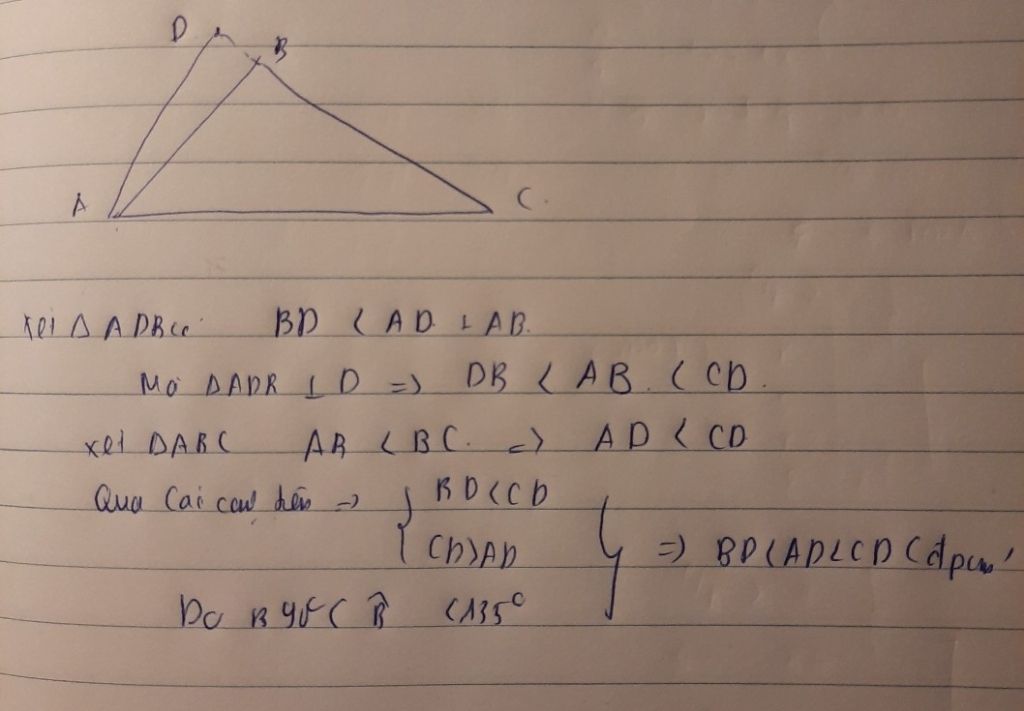 D
B
A
C.
Xét Δ ADB có: BD < AD + AB.
Mà ΔADB ⊥ D => DB < AB. < CD.
xét ΔABC AB < BC. => AD < CD
Qua các câu trên => { BD < CD
CD > AD } => BD < AD < CD (đpcm)
Do B 90° < B̂ < 135°